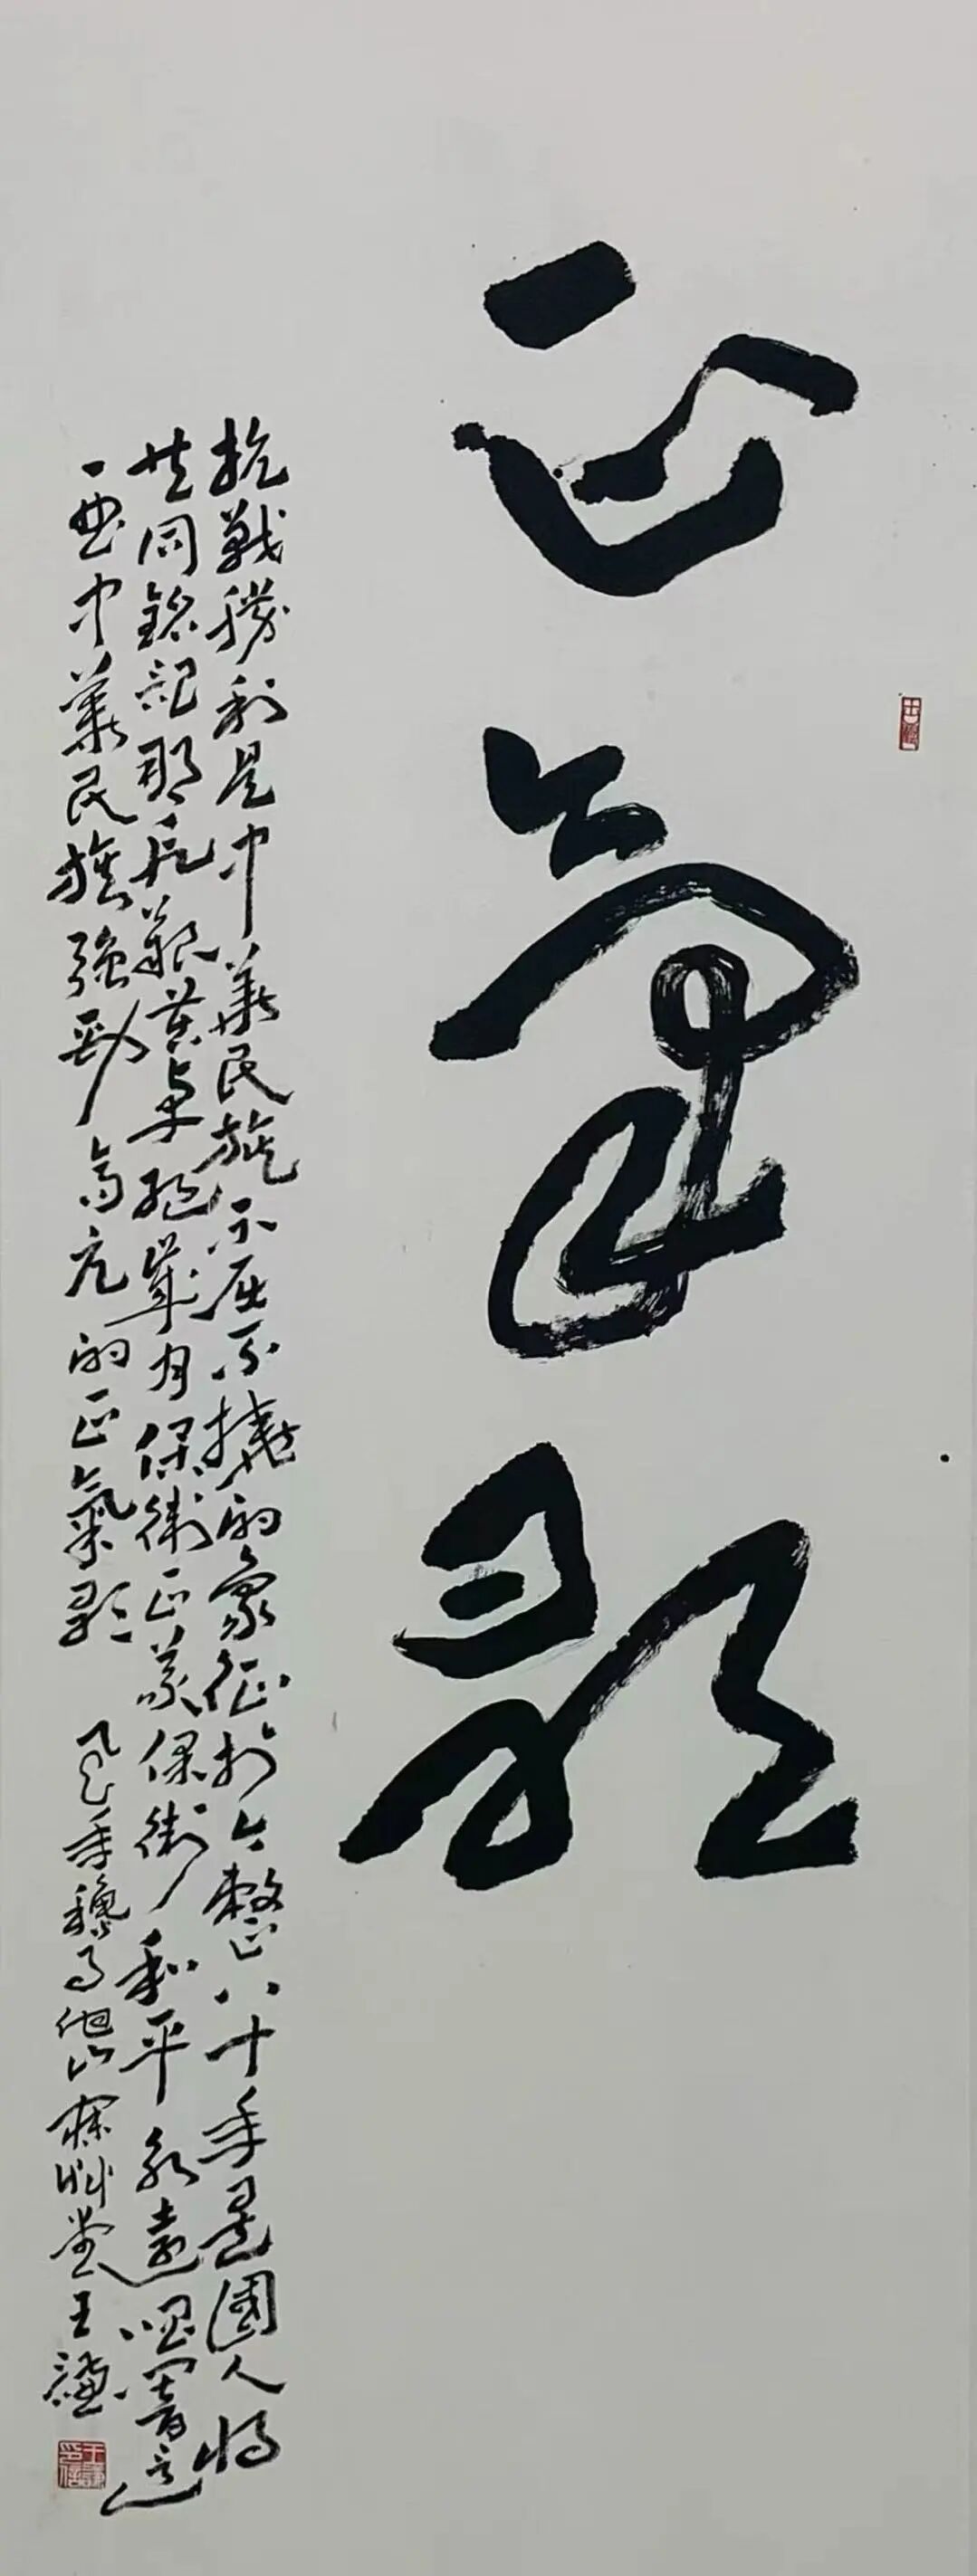 正氣歌
抗戰勝利是中華民族不屈不撓的象征於今整整八十年是國人將
共同銘記那段艱苦卓絕歲月保衛正義保衛和平永遠唱響這
一曲中華民族強勁高亢的正氣歌 乙巳年穐月但山寐艸堂王謙
王謙印信